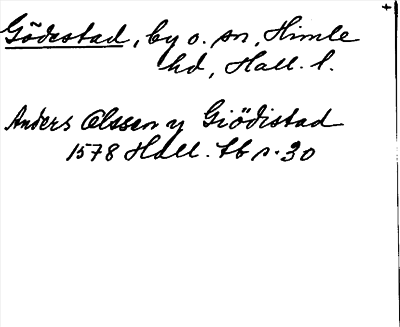 Gödestad, by o. sn, Himle
hd, Hall. l.
Anders Olssen y Giödistad
1578 Hall. tb s. 30